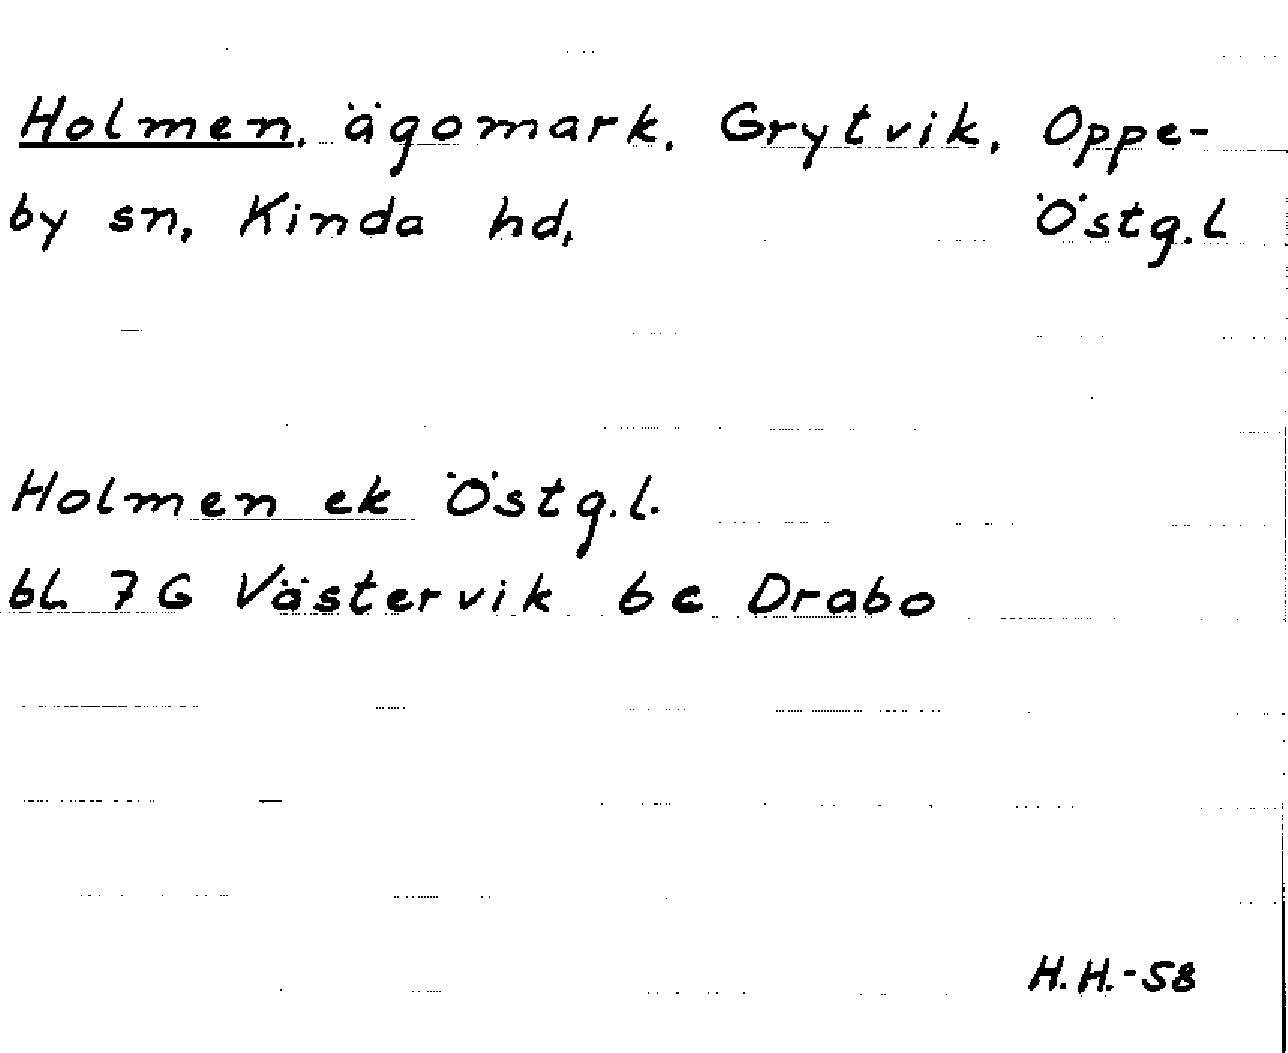 Holmen, ägomark, Grytvik, Oppe-
by sn, Kinda hd, Östg.l
Holmen ek Östg.l.
bl. 7G Västervik 6c Drabo
H.H.-58